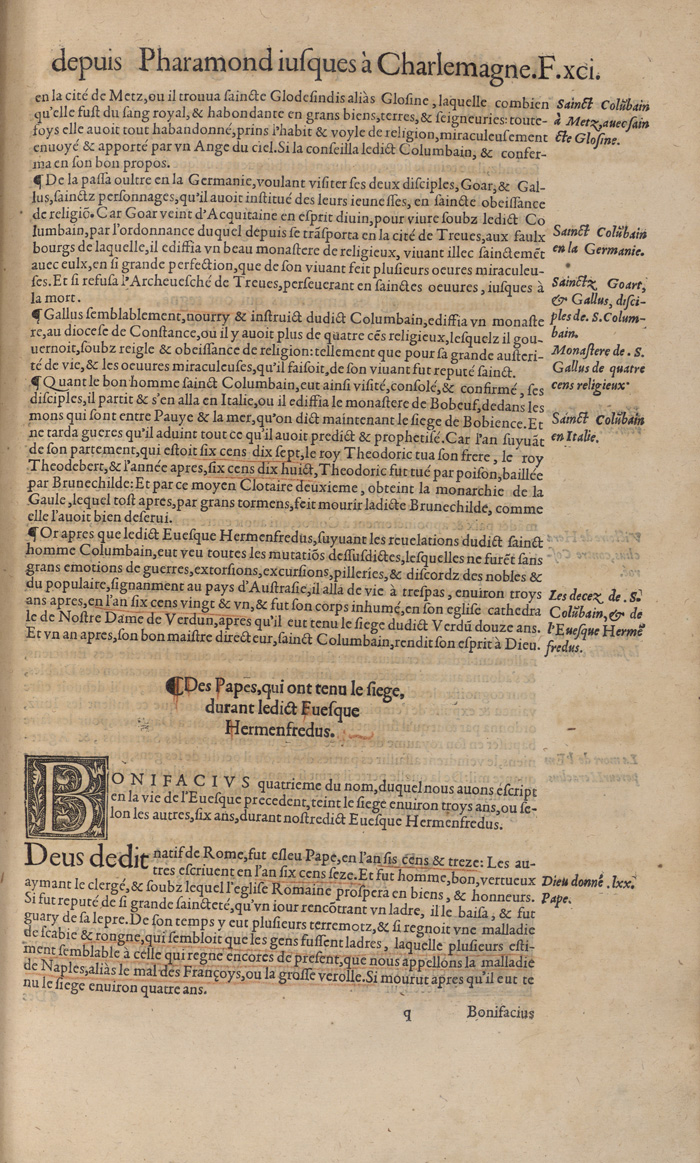 depuis Pharamond iuſques à Charlemagne. F. xci.
en la cité de Metz, ou il trouua ſaincte Glodeſindis aliàs Gloſine, laquelle combien
qu'elle fuſt du ſang royal, & habondante en grans biens, terres, & ſeigneuries: toute-
foys elle auoit tout habandonné, prins l'habit & voyle de religion, miraculeuſement
enuoyé & apporté par vn Ange du ciel. Si la conſeilla ledict Columbain, & confer-
ma en ſon bon propos.
Sainct Colūbain
à Metz, auec ſain
cte Gloſine.
¶ De la paſſa oultre en la Germanie, voulant viſiter ſes deux diſciples, Goar, & Gal-
lus, ſainctz perſonnages, qu'il auoit inſtitué des leurs ieuneſſes, en ſaincte obeiſſance
de religiō. Car Goar veint d'Acquitaine en eſprit diuin, pour viure ſoubz ledict Co
lumbain, par l'ordonnance duquel depuis ſe trāſporta en la cité de Treues, aux faulx
bourgs de laquelle, il ediffia vn beau monaſtere de religieux, viuant illec ſainctemēt
auec eulx, en ſi grande perfection, que de ſon viuant feit pluſieurs oeures miraculeu-
ſes. Et ſi refuſa l'Archeueſché de Treues, perſeuerant en ſainctes oeuures, iuſques à
la mort.
Sainct Colūbain
en la Germanie.
*
Sainctz Goart,
& Gallus, diſci-
ples de. S. Colum-
bain.
¶ Gallus ſemblablement, nourry & inſtruict dudict Columbain, ediffia vn monaſte
re, au dioceſe de Conſtance, ou il y auoit plus de quatre cēs religieux, leſquelz il gou-
uernoit, ſoubz reigle & obeiſſance de religion: tellement que pour ſa grande auſteri-
té de vie, & les oeuures miraculeuſes, qu'il faiſoit, de ſon viuant fut reputé ſainct.
Monaſtere de. S.
Gallus de quatre
cens religieux.
¶ Quant le bon homme ſainct Columbain, eut ainſi viſité, conſolé, & confirmé, ſes
diſciples, il partit & s'en alla en Italie, ou il ediffia le monaſtere de Bobeuf, dedans les
mons qui ſont entre Pauye & la mer, qu'on dict maintenant le ſiege de Bobience. Et
ne tarda gueres qu'il aduint tout ce qu'il auoit predict & prophetiſé. Car l'an ſuyuāt
de ſon partement, qui eſtoit ſix cens dix ſept, le roy Theodoric tua ſon frere, le roy
Theodebert, & l'année apres, ſix cens dix huict, Theodoric fut tué par poiſon, baillée
par Brunechilde: Et par ce moyen Clotaire deuxieme, obteint la monarchie de la
Gaule, lequel toſt apres, par grans tormens, feit mourir ladicte Brunechilde, comme
elle l'auoit bien deſerui.
Sainct Colūbain
en Italie.
¶ Or apres que ledict Eueſque Hermenfredus, ſuyuant les reuelations dudict ſainct
homme Columbain, eut veu toutes les mutatiōs deſſuſdictes, leſquelles ne furēt ſans
grans emotions de guerres, extorſions, excurſions, pilleries, & diſcordz des nobles &
du populaire, ſignanment au pays d'Auſtraſie, il alla de vie à treſpas, enuiron troys
ans apres, en l'an ſix cens vingt & vn, & fut ſon corps inhumé, en ſon egliſe cathedra
le de Noſtre Dame de Verdun, apres qu'il eut tenu le ſiege dudict Verdū douze ans.
Et vn an apres, ſon bon maiſtre directeur, ſainct Columbain, rendit ſon eſprit à Dieu.
Les decez de. S.
Colūbain, & de
l'Eueſque Hermē
fredus.
¶ Des Papes, qui ont tenu le ſiege,
durant ledict Eueſque
Hermenfredus.
BONIFACIVS quatrieme du nom, duquel nous auons eſcript
en la vie de l'Eueſque precedent, teint le ſiege enuiron troys ans, ou ſe-
lon les autres, ſix ans, durant noſtredict Eueſque Hermenfredus.
Deus dedit natif de Rome, fut eſleu Pape, en l'an ſis cens & treze: Les au-
tres eſcriuent en l'an ſix cens ſeze. Et fut homme, bon, vertueux
aymant le clergé, & ſoubz lequel l'egliſe Romaine proſpera en biens, & honneurs.
Si fut reputé de ſi grande ſaincteté, qu'vn iour rencōtrant vn ladre, il le baiſa, & fut
guary de ſa lepre. De ſon temps y eut pluſieurs terremotz, & ſi regnoit vne malladie
de ſcabie & rongne, qui ſembloit que les gens fuſſent ladres, laquelle pluſieurs eſti-
ment ſemblable à celle qui regne encores de preſent, que nous appellons la malladie
de Naples, aliàs le mal des Françoys, ou la groſſe verolle. Si mourut apres qu'il eut te
nu le ſiege enuiron quatre ans.
Dieu donné. lxx.
Pape.
q
Bonifacius